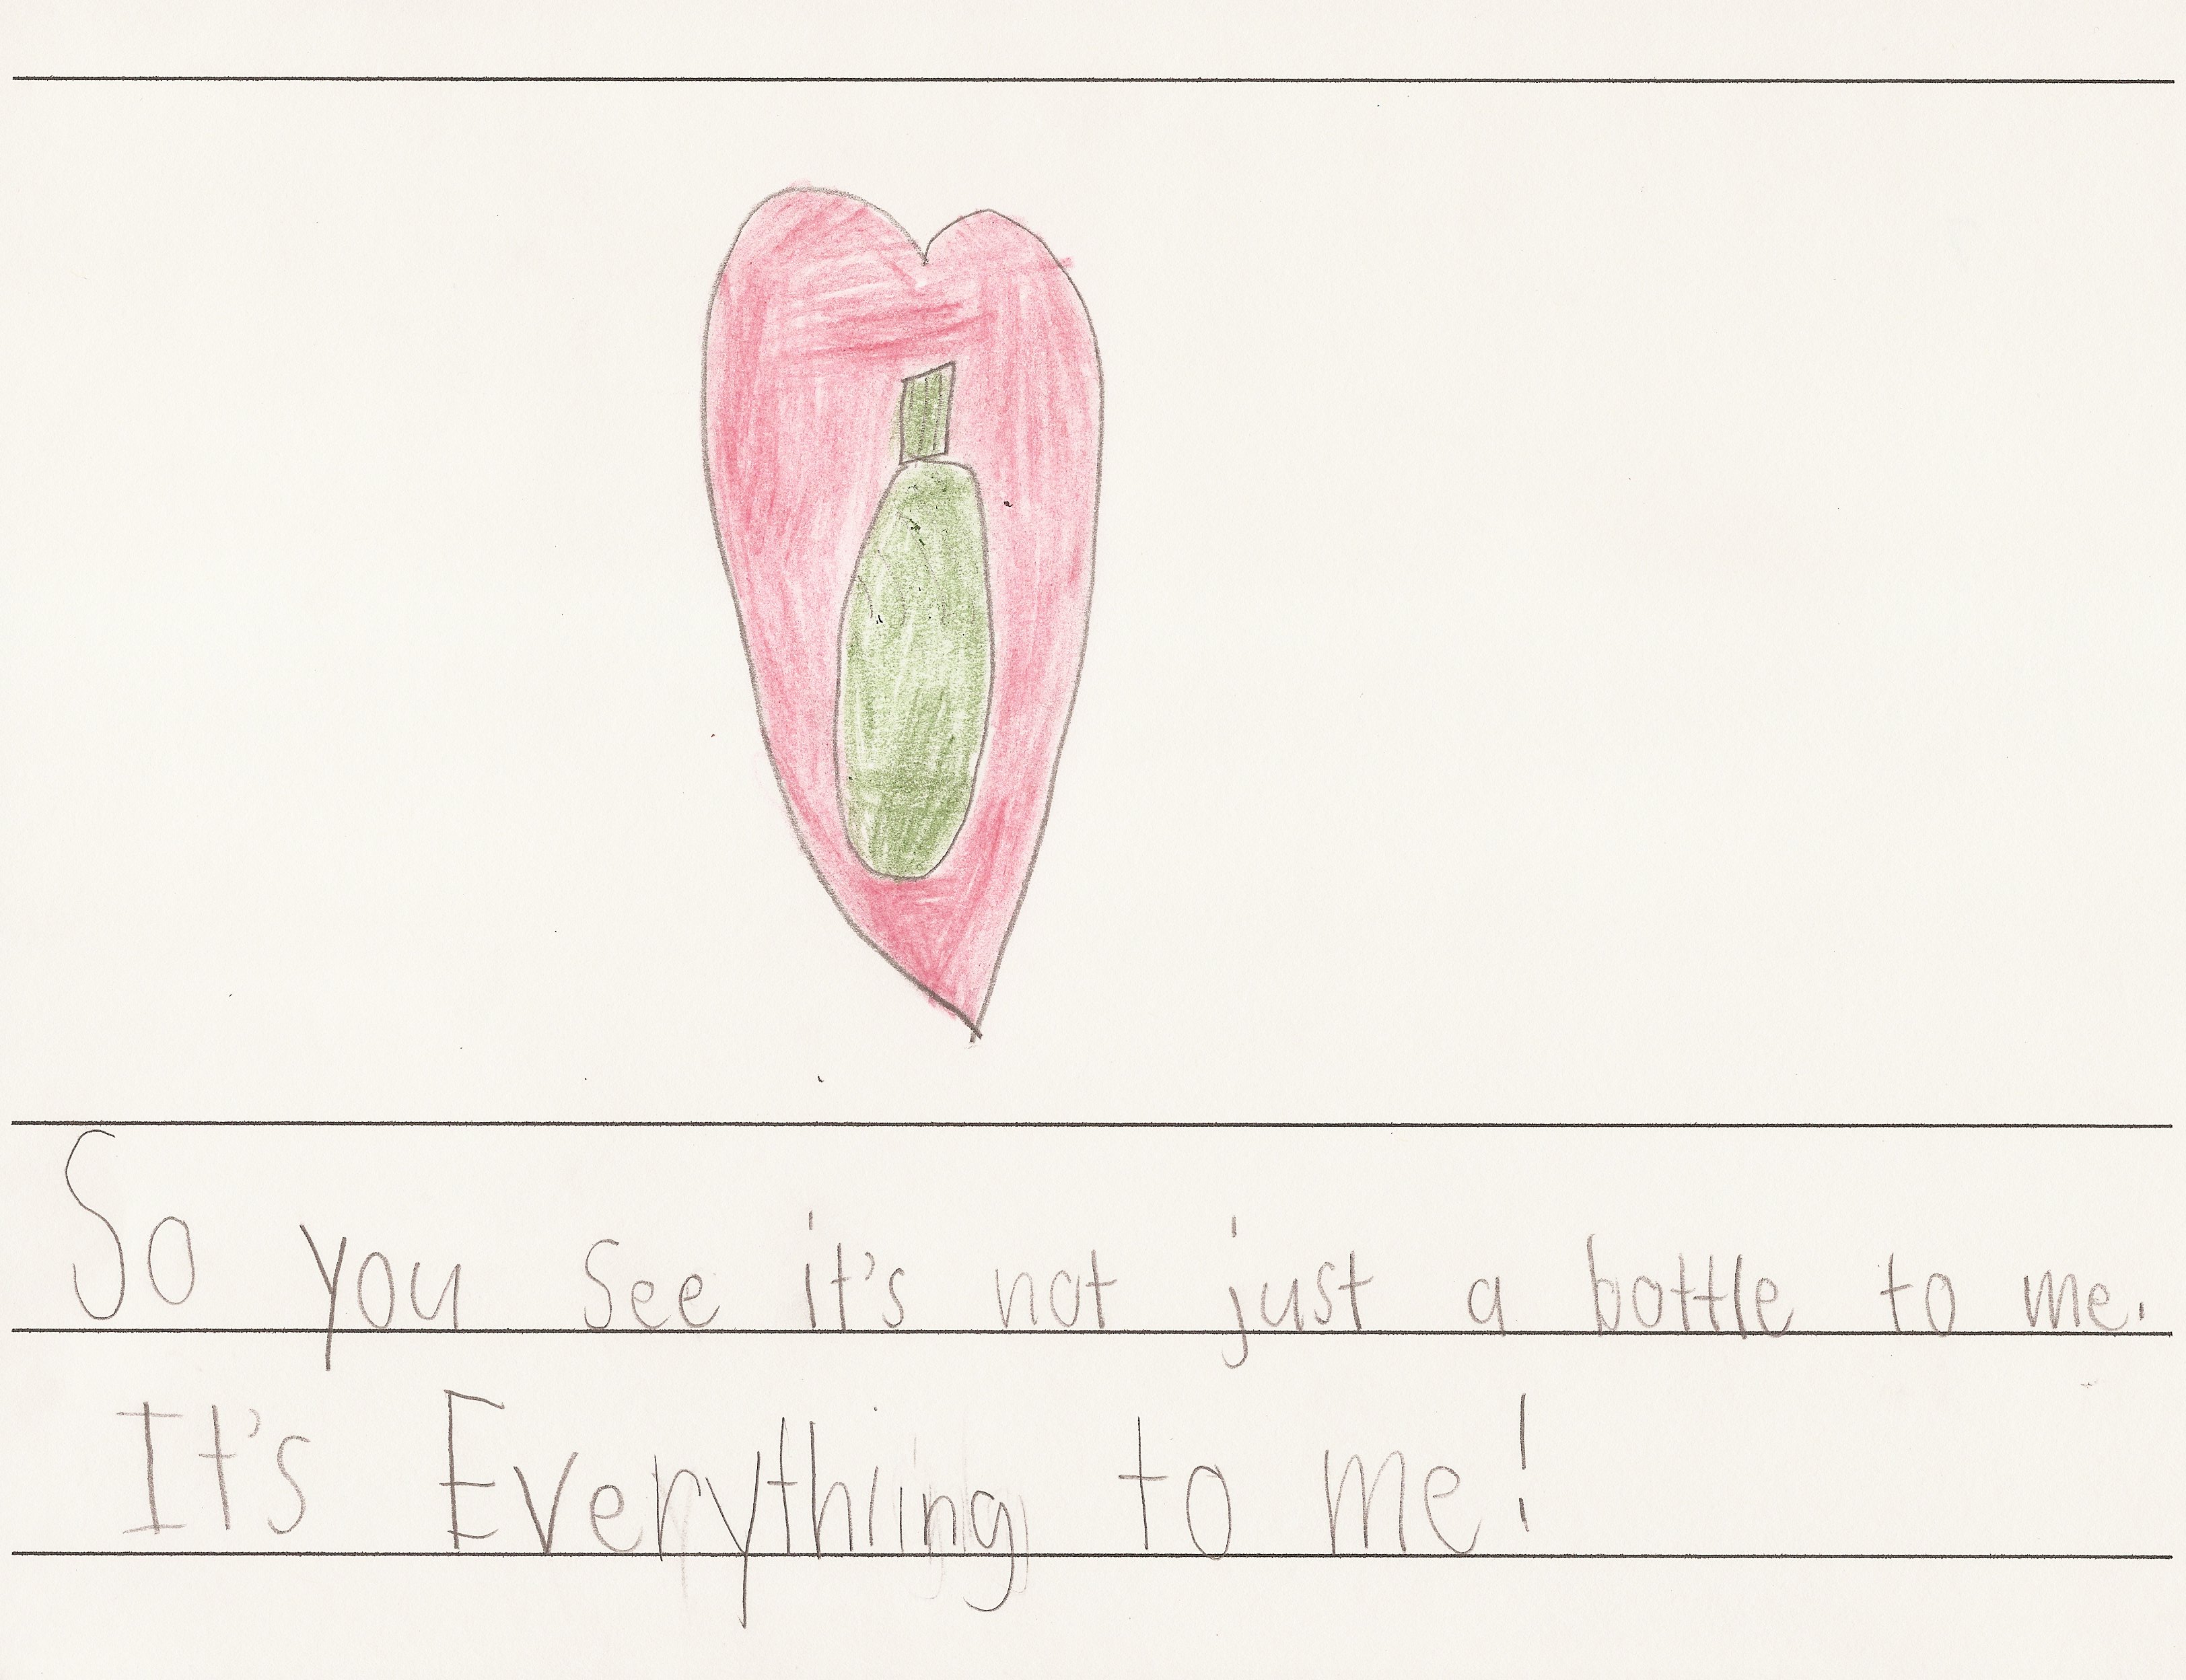 So you see it's not just a bottle to me.
It's Everything to me!